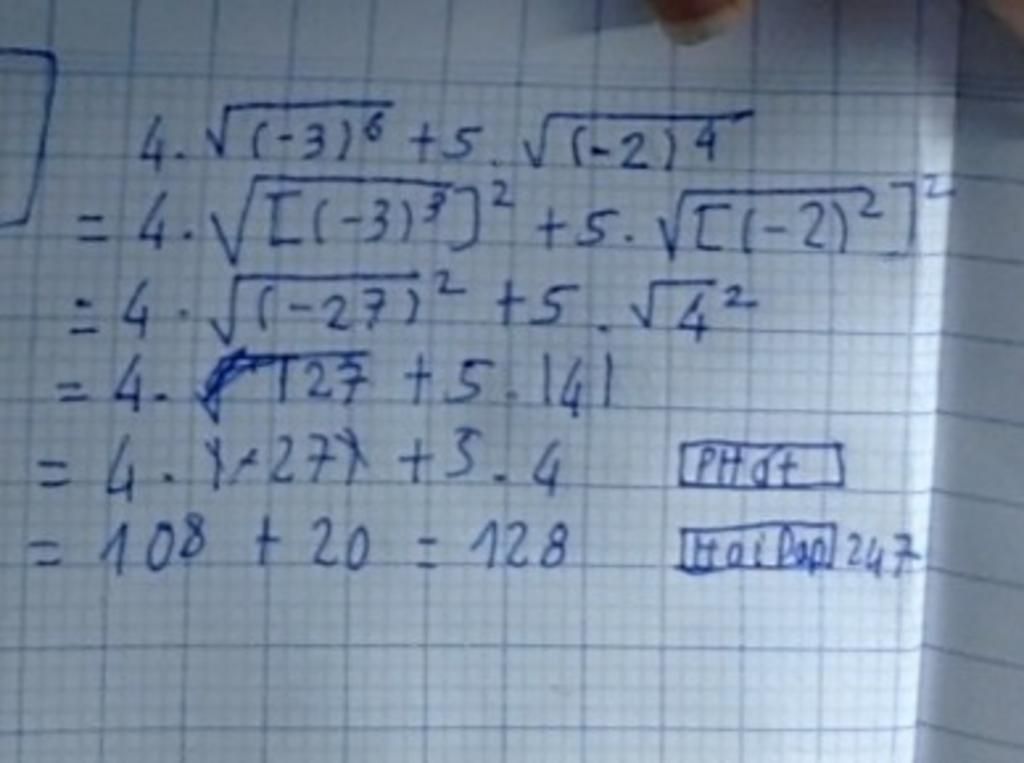 4.√(-3)⁶ + 5.√(-2)⁴
= 4.√[(-3)³]² + 5.√[(-2)²]²
= 4.√(-27)² + 5.√4²
= 4. 127 + 5.|4|
= 4. 27 + 5.4 PHđt
= 108 + 20 = 128 HoiDap 247